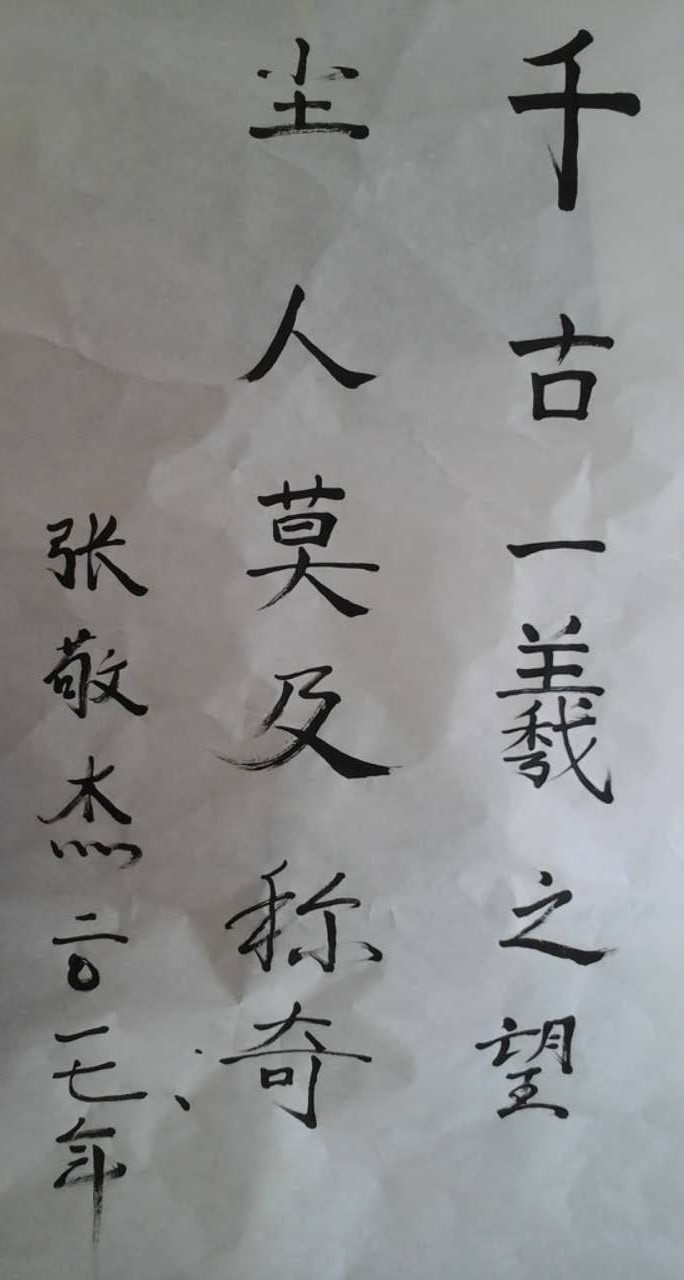 千古一羲之望
尘人莫及称奇
张敬杰二〇一七年